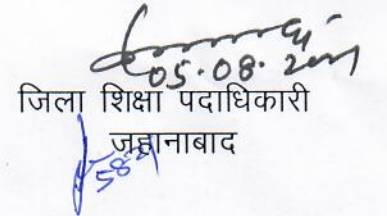 05.08.2021
जिला शिक्षा पदाधिकारी
जहानाबाद